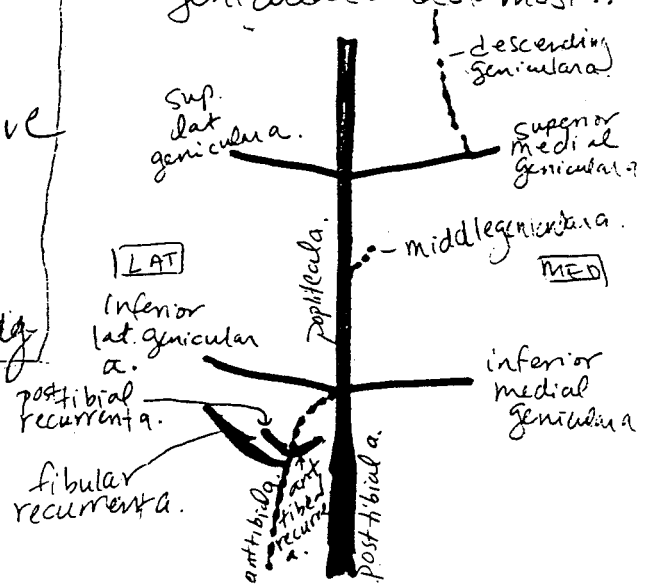 descending
genicular a.
sup.
lat
genicular a.
superior
medial
genicular a.
ve
middle genicular a.
LAT
MED
popliteal a.
inferior
lat. genicular
a.
inferior
medial
genicular a
post tibial
recurrent a.
fibular
recurrent a.
ant tibial a.
ant
tibial
recurrent
a.
post tibial a.